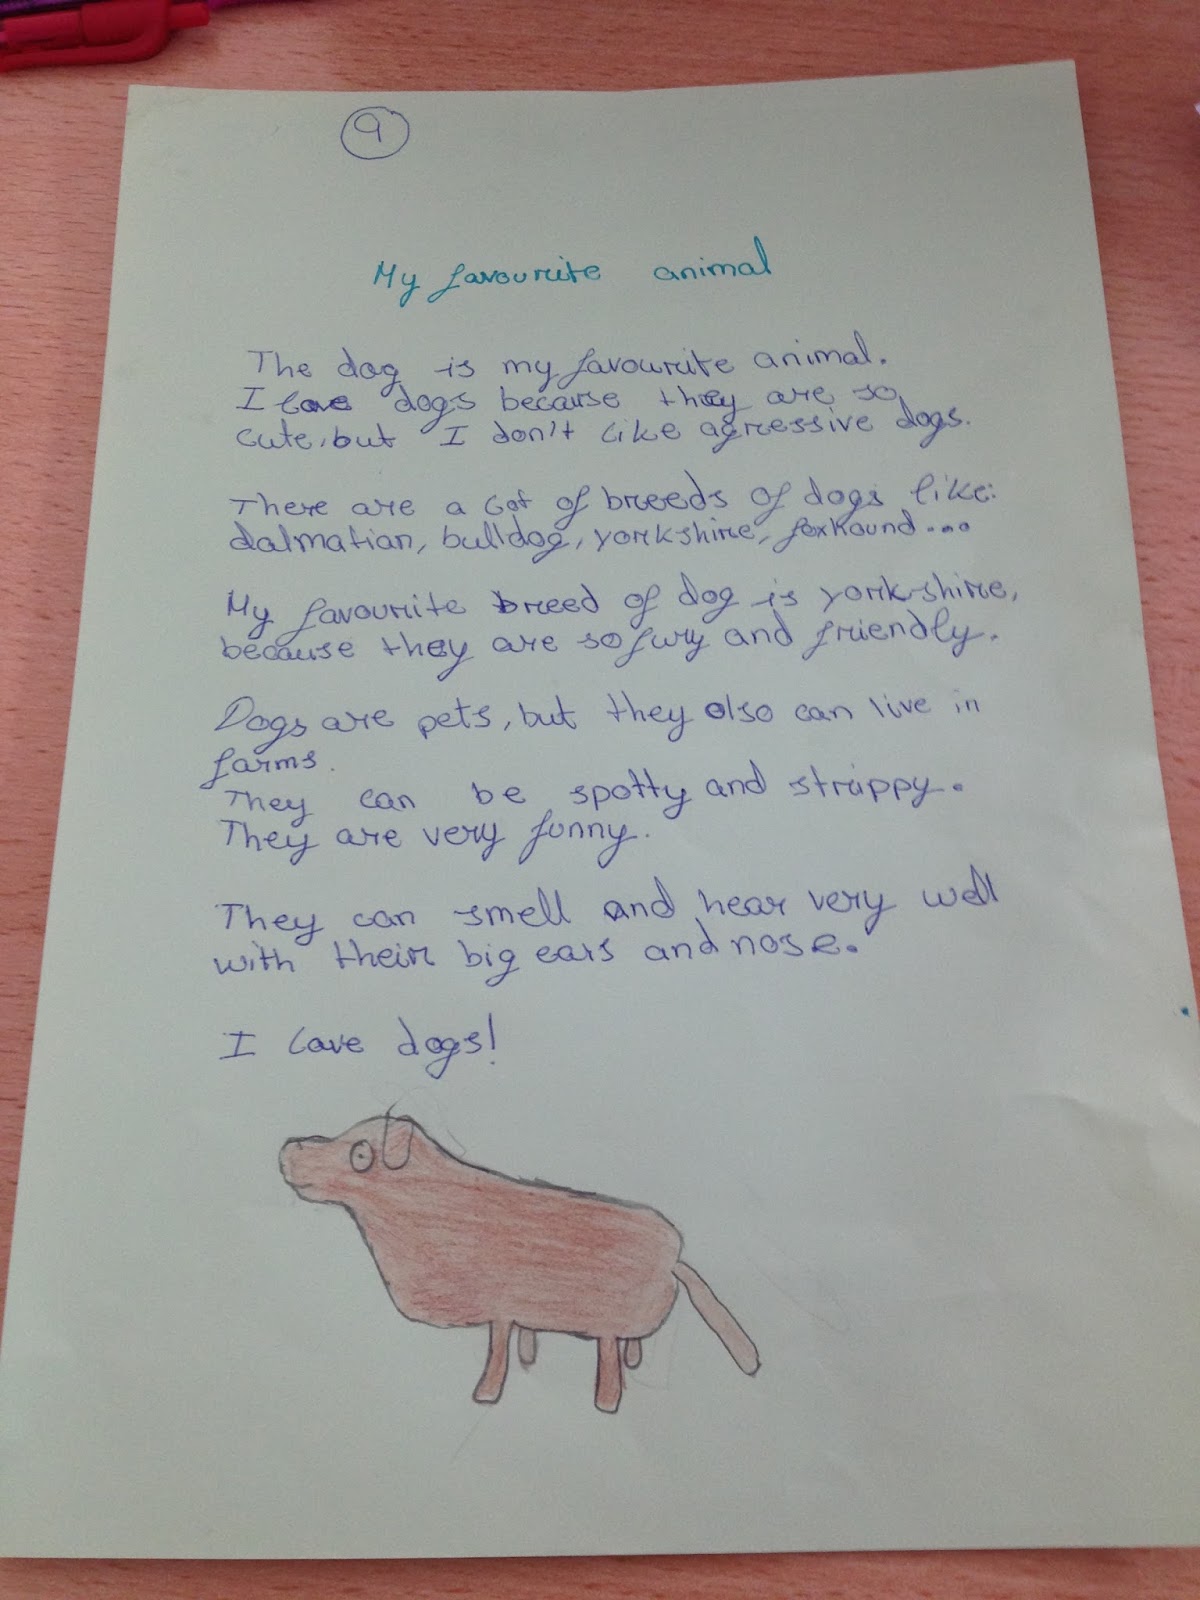 9
My favourite animal
The dog is my favourite animal.
I love dogs because they are so
cute, but I don't like agressive dogs.
There are a lot of breeds of dogs like:
dalmatian, bulldog, yorkshire, foxhound...
My favourite breed of dog is yorkshire,
because they are so fury and friendly.
Dogs are pets, but they also can live in
farms.
They can be spotty and strippy.
They are very funny.
They can smell and hear very well
with their big ears and nose.
I love dogs!